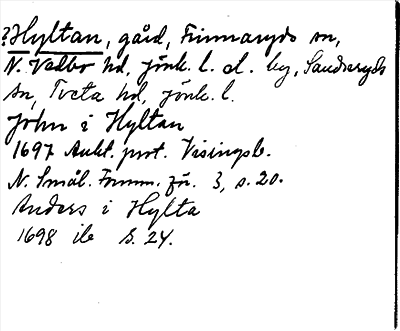 ?Hyltan, gård, Finnaryds sn,
N. Vedbo hd, Jönk. l. el. by, Sandseryds
sn, Tveta hd, Jönk. l.
John i Hyltan
1697 Aukt. prot. Visingsb.
N. Smål. Fornm. för. 3, s. 20.
Anders i Hylta
1698 ib S. 24.